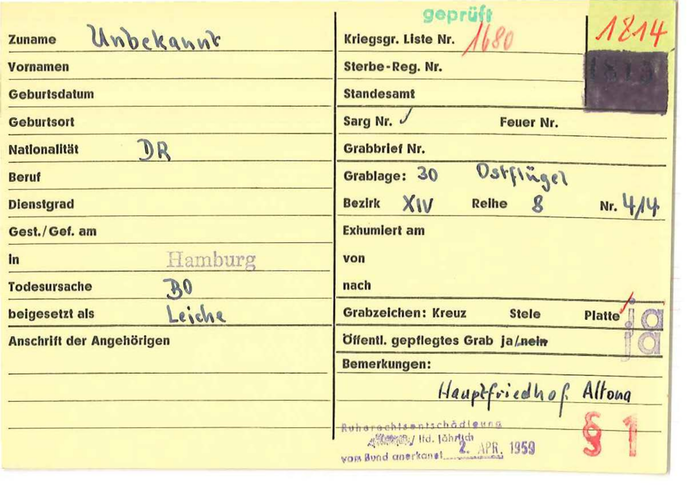 geprüft
Zuname Unbekannt
Vornamen
Geburtsdatum
Geburtsort
Nationalität DR
Beruf
Dienstgrad
Gest./Gef. am
in Hamburg
Todesursache BO
beigesetzt als Leiche
Anschrift der Angehörigen
Kriegsgr. Liste Nr. 1680
1814
Sterbe-Reg. Nr.
Standesamt
Sarg Nr. Feuer Nr.
Grabbrief Nr.
Grablage: 30 Ostflügel
Bezirk XIV Reihe 8 Nr. 4/14
Exhumiert am
von
nach
Grabzeichen: Kreuz Stele Platte ja
Öffentl. gepflegtes Grab ja/nein ja
Bemerkungen:
Hauptfriedhof Altona
Ruherechtsentschädigung
/ lfd. jährlich
vom Bund anerkannt 2. APR. 1959
§ 1